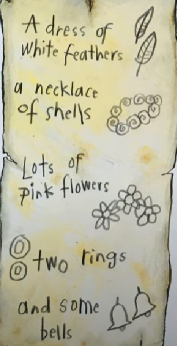 A dress of
white feathers
a necklace
of shells
Lots of
pink flowers
two rings
and some
bells